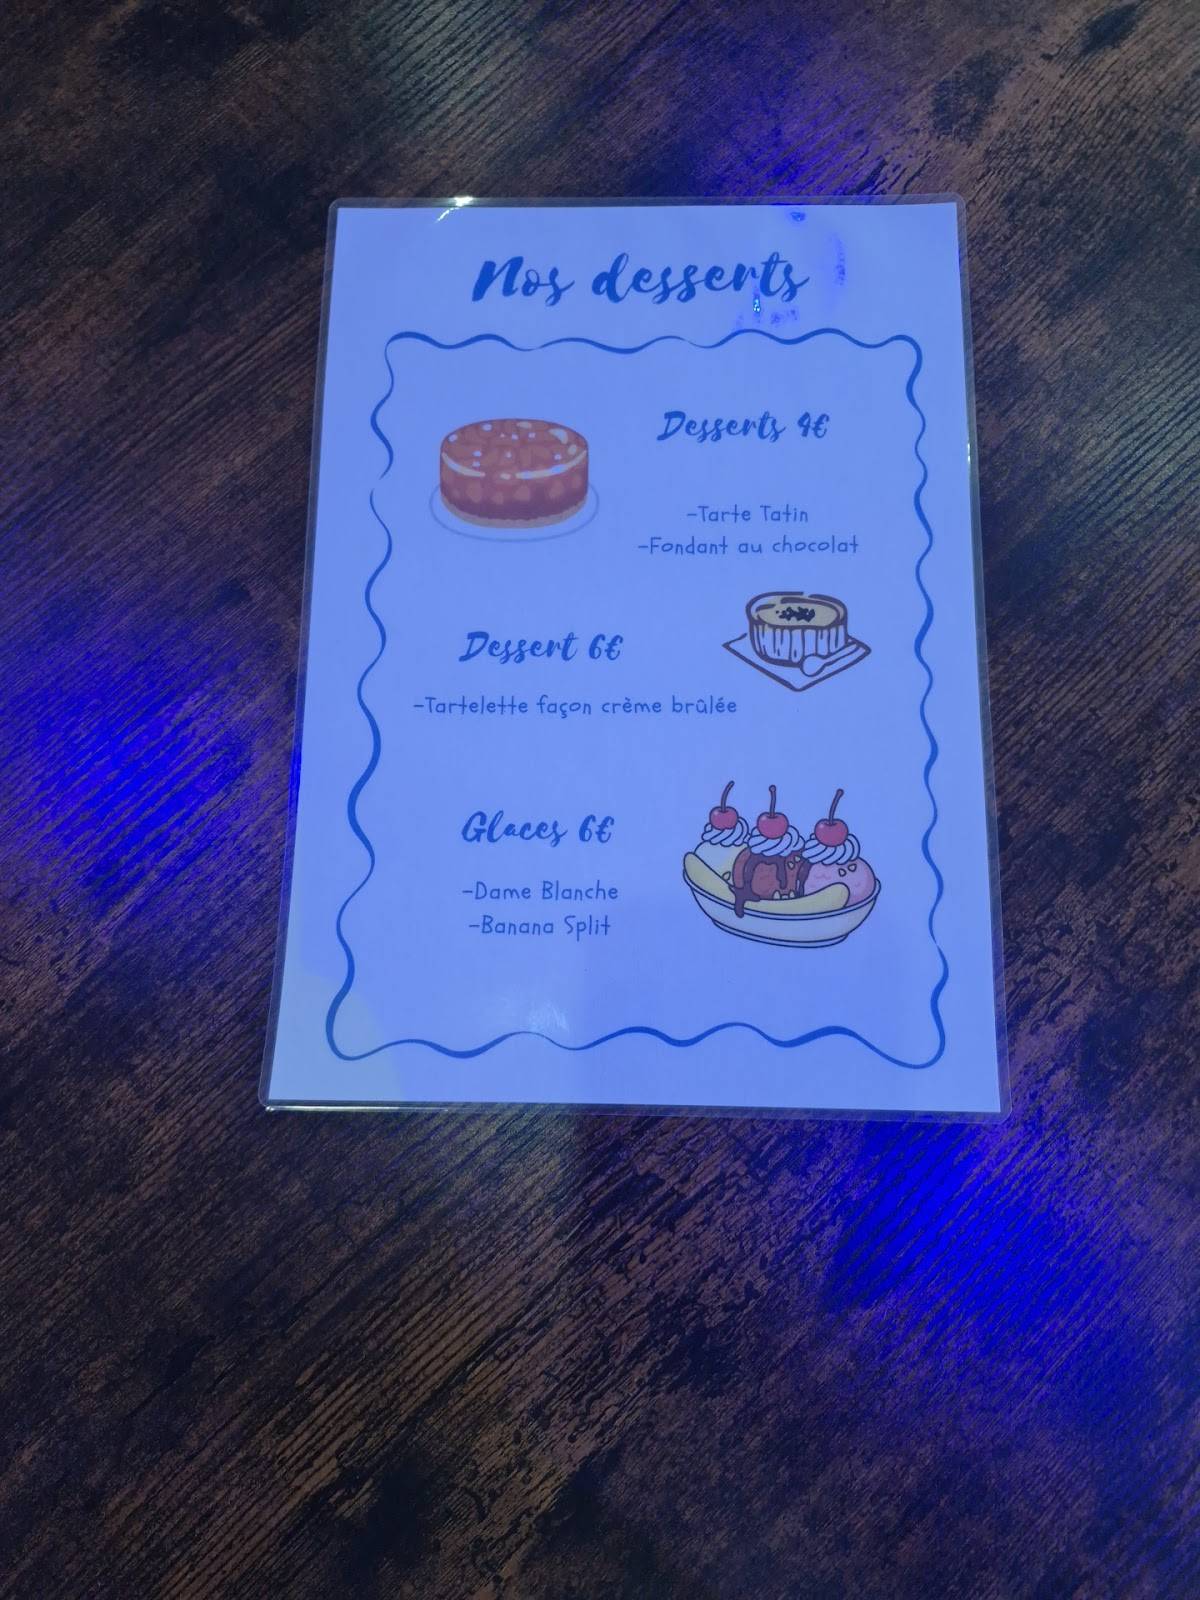 Nos desserts
Desserts 4€
-Tarte Tatin
-Fondant au chocolat
Dessert 6€
-Tartelette façon crème brûlée
Glaces 6€
-Dame Blanche
-Banana Split